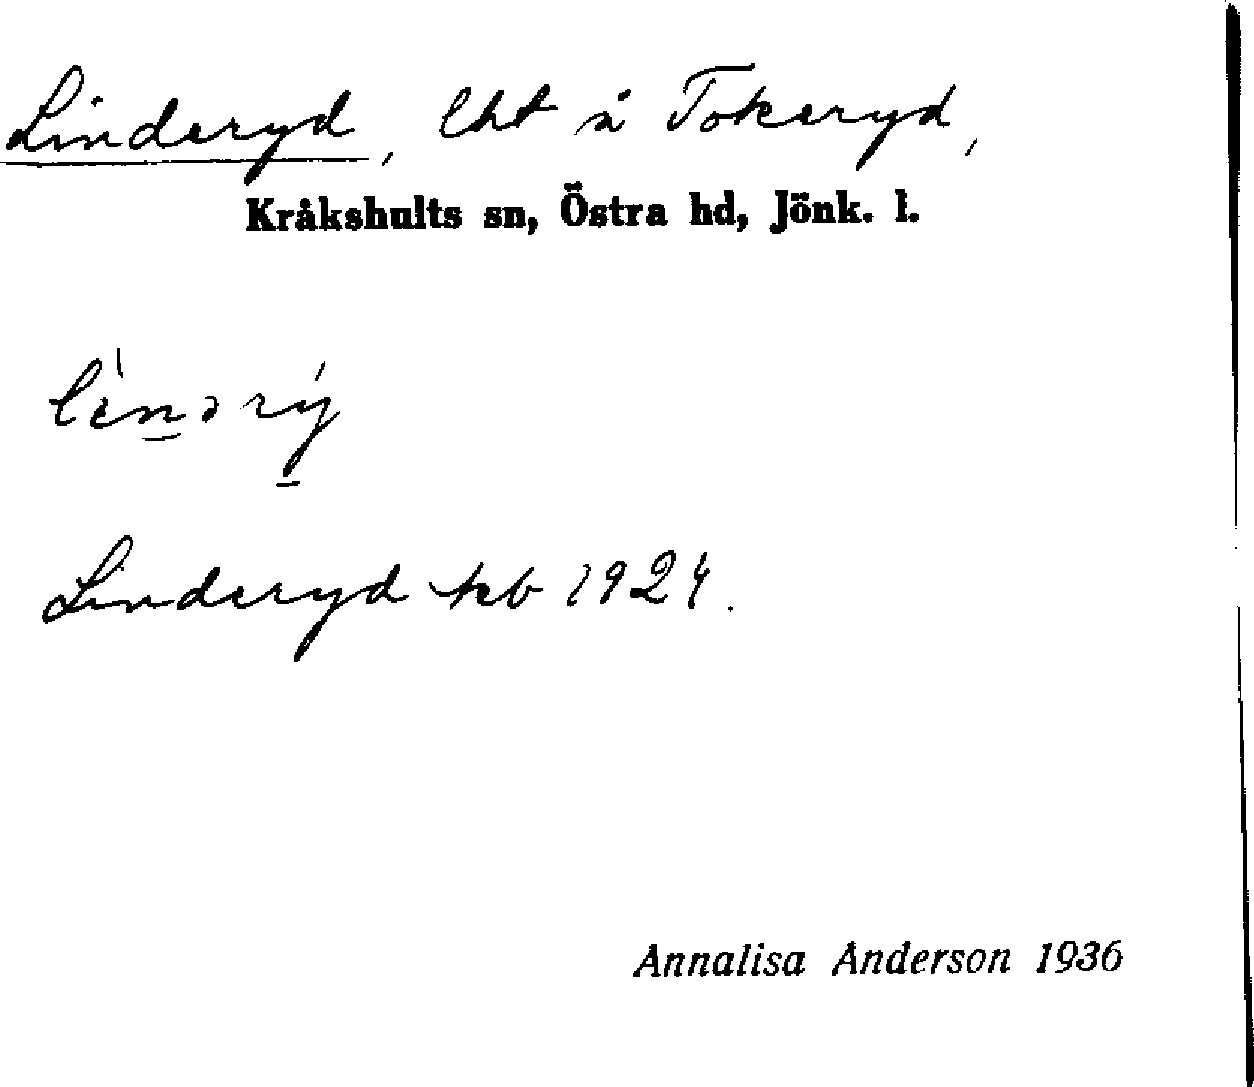 Linderyd, lht å Tokeryd,
Kråkshults sn, Östra hd, Jönk. l.
Linderyd kb 1924.
Annalisa Anderson 1936